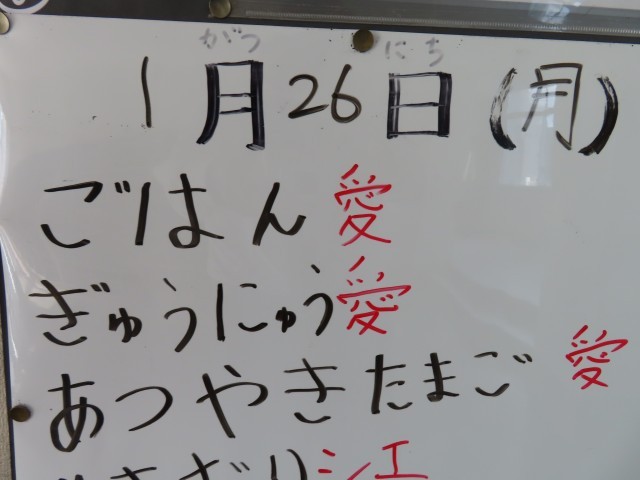 がつ にち
1月26日(月)
ごはん 愛
ぎゅうにゅう 愛
あつやきたまご 愛